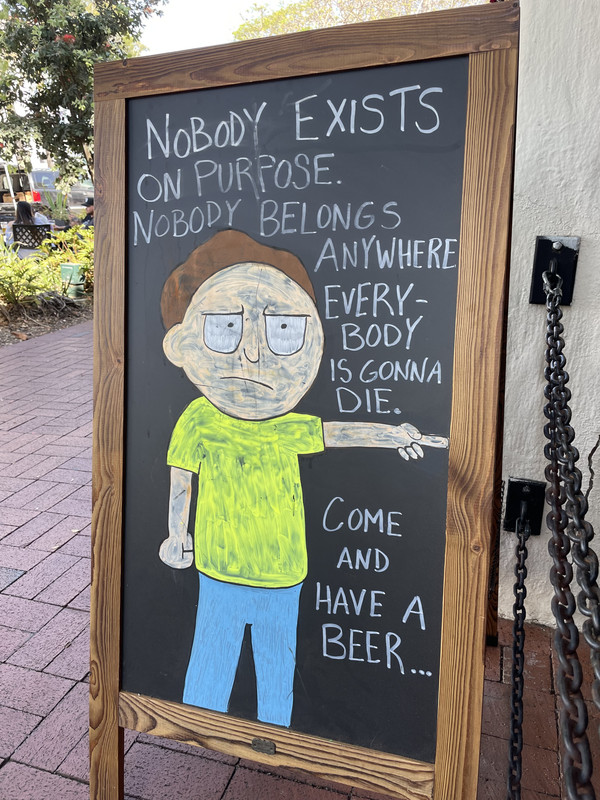 NOBODY EXISTS
ON PURPOSE.
NOBODY BELONGS
ANYWHERE
EVERY-
BODY
IS GONNA
DIE.
COME
AND
HAVE A
BEER...